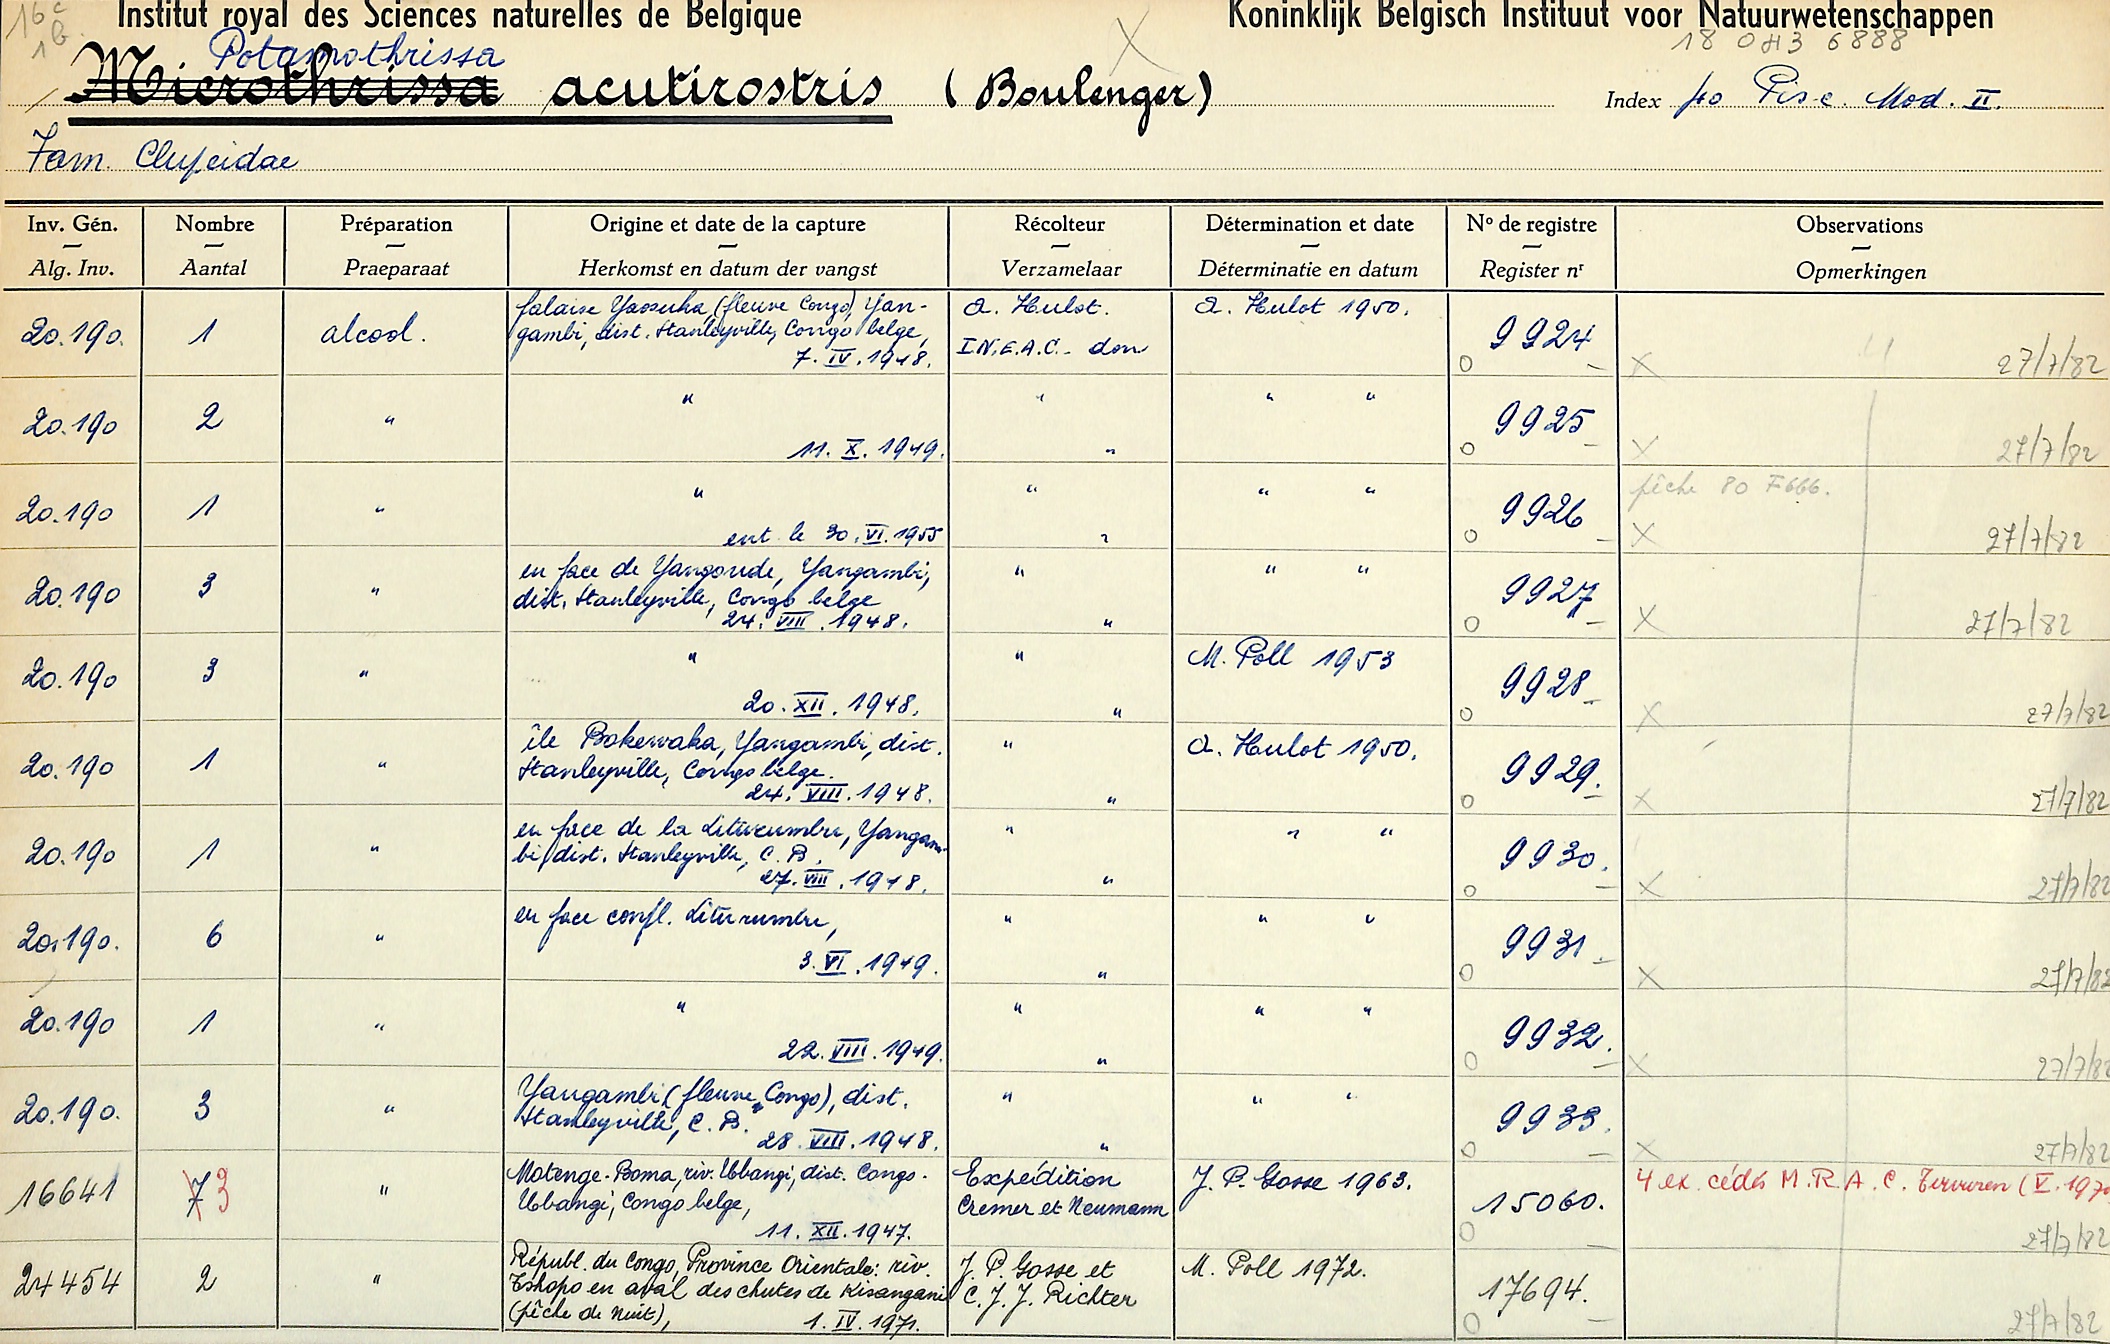 16c
1b
Institut royal des Sciences naturelles de Belgique
Koninklijk Belgisch Instituut voor Natuurwetenschappen
18 0H3 6888
Potamothrissa
Microthrissa acutirostris (Boulenger)
Index no Pisc. Mod. II.
Fam. Clupeidae
Inv. Gén. Nombre Préparation Origine et date de la capture Récolteur Détermination et date No de registre Observations
Alg. Inv. Aantal Praeparaat Herkomst en datum der vangst Verzamelaar Déterminatie en datum Register nr Opmerkingen
falaise Yaosuka (fleuve Congo) Yan- A. Hulot. A. Hulot 1950.
20.190. 1 alcool. gambi, dist. Stanleyville, Congo belge, I.N.E.A.C. - don 9924
7. IV. 1948. O X 27/7/82
" " " "
20.190 2 " 9925
11. X. 1949. " O X 27/7/82
" " " " pêche 80 F666.
20.190 1 " 9926
ent. le 30. VI. 1955 " O X 27/7/82
en face de Yangonde, Yangambi, " " "
20.190 3 " dist. Stanleyville, Congo belge 9927
24. VIII. 1948. " O X 27/7/82
" " M. Poll 1953
20.190 3 " 9928
20. XII. 1948. " O X 27/7/82
île Bokewaka, Yangambi, dist. " A. Hulot 1950.
20.190 1 " Stanleyville, Congo belge. 9929.
24. VIII. 1948. " O X 27/7/82
en face de la Liturumbu, Yangam- " " "
20.190 1 " bi, dist. Stanleyville, C. B. 9930.
27. VIII. 1948. " O X 27/7/82
en face confl. Liturumbu, " " "
20.190. 6 " 9931
3. VI. 1949. " O X 27/7/82
" " " "
20.190 1 " 9932.
22. VIII. 1949. " O X 27/7/82
Yangambi (fleuve Congo), dist. " " "
20.190. 3 " Stanleyville, C. B. 9933.
28. VIII. 1948. " O X 27/7/82
Motenge-Boma, riv. Ubangi, dist. Congo- Expédition J. P. Gosse 1963. 4 ex. cédés M.R.A.C. Tervuren (V. 197
16641 7 3 " Ubangi, Congo belge, Cremer et Neumann 15060.
11. XII. 1947. O 27/7/82
Républ. du Congo, Province Orientale: riv. J. P. Gosse et M. Poll 1972.
24454 2 " Tshopo en aval des chutes de Kisangani C. J. J. Richter 17694.
(pêche de nuit), 1. IV. 1971. O 27/7/82